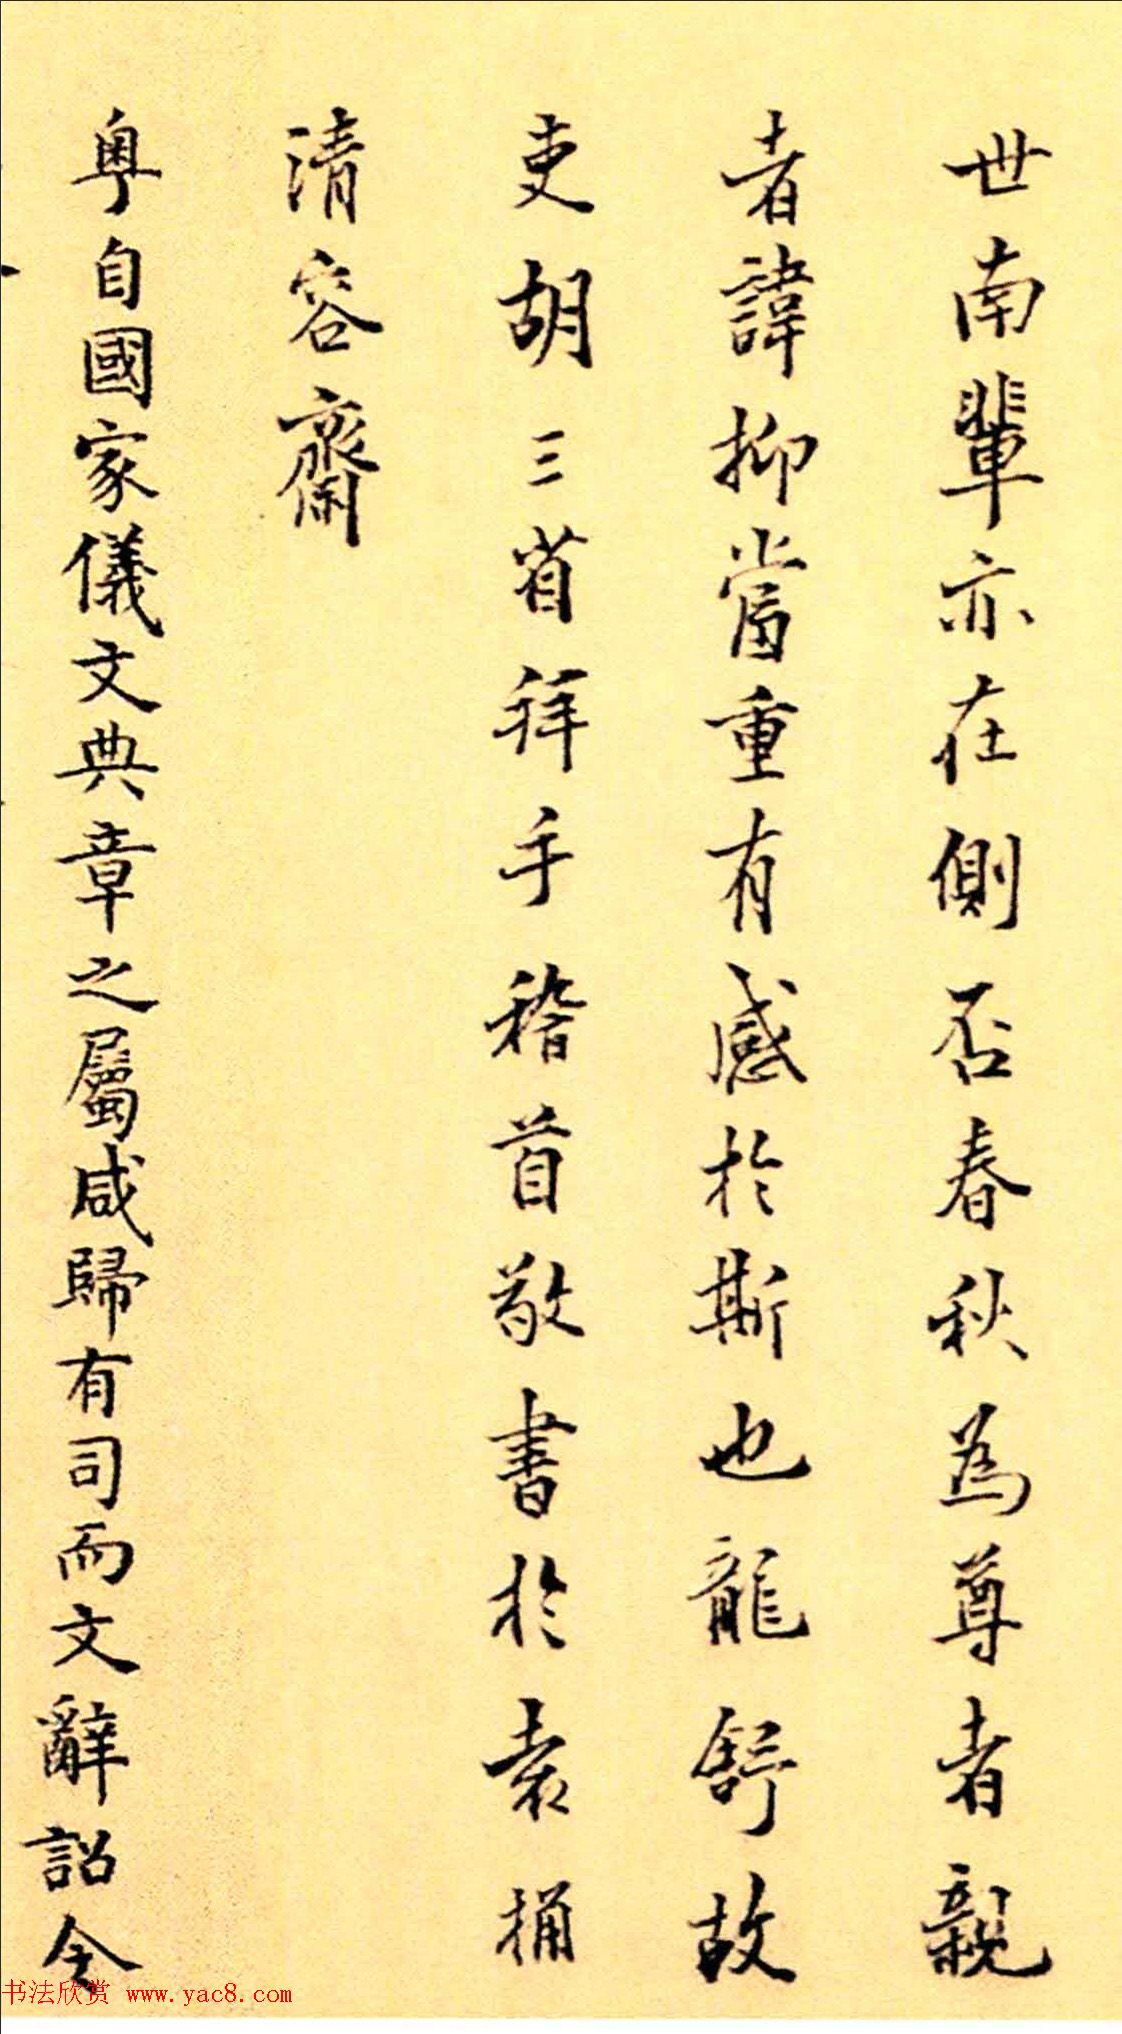 世南輩亦在側否春秋為尊者親
者諱抑當重有感於斯也龍舒故
吏胡三省拜手稽首敬書於袁桷
清容齋
粵自國家儀文典章之屬咸歸有司而文辭詔令
书法欣赏 www.yac8.com